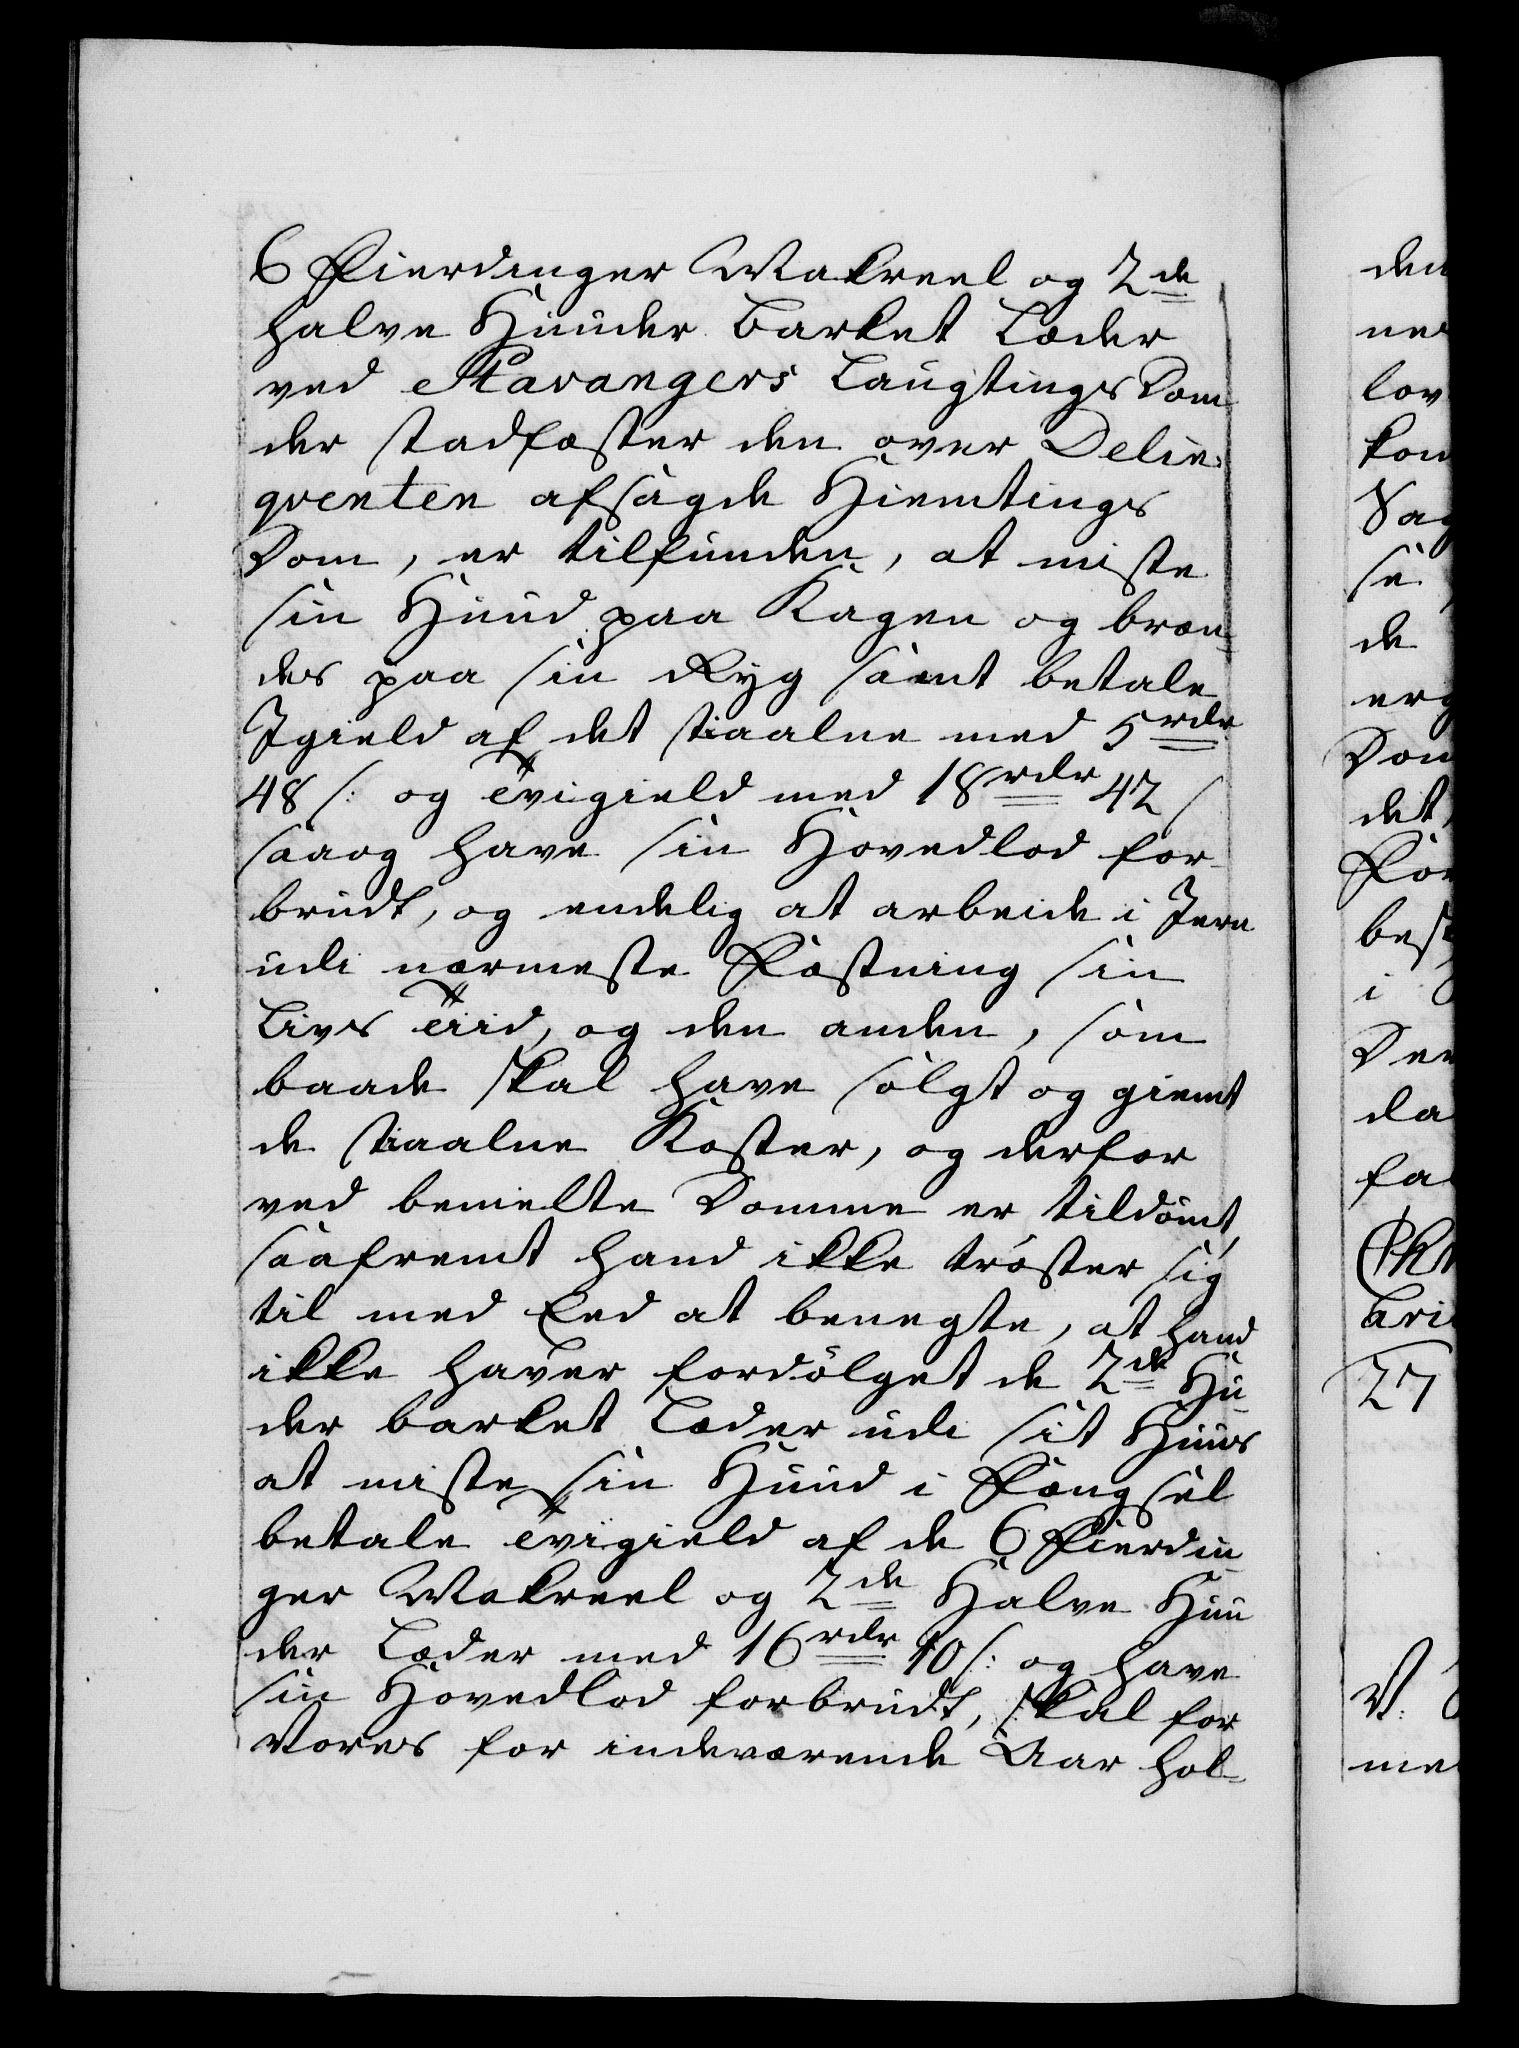 6 Fierdinger Makreel og 2de
halve Huuder barket Læder
ved Stavangers Laugtings Dom
der stadfæster den over Delin-
qventen afsagde Hiemtings
Dom, er tilfunden, at miste
sin Huud paa Kagen og bræn-
des paa sin Ryg samt betale
Igield af det staalne med 5 rdr
48 s: og Tvigield med 18 rdr 42 s
saaog have sin Hovedlod for-
brudt, og endelig at arbeide i Jern
udi nærmeste Fæstning sin
Livs Tiid, og den anden, som
baade skal have solgt og giemt
de staalne Koster, og derfor
ved bemelte Domme er tildømt,
saafremt hand ikke trøster sig
til med Eed at benegte, at hand
ikke haver fordølget de 2de Hu-
der barket Læder udi sit Huus
at miste sin Huud i Fængsel
betale Tvigield af de 6 Fierdin-
ger Makreel og 2de Halve Huu
der Læder med 16 rdr 10 s: og have
sin Hovedlod forbrudt, skal for
Vores for indeværende Aar hol-
den
lov
kom
Sag
se
de
erg
Dom
det
For
best
i
Den
da
fa
bri
27
V:
me